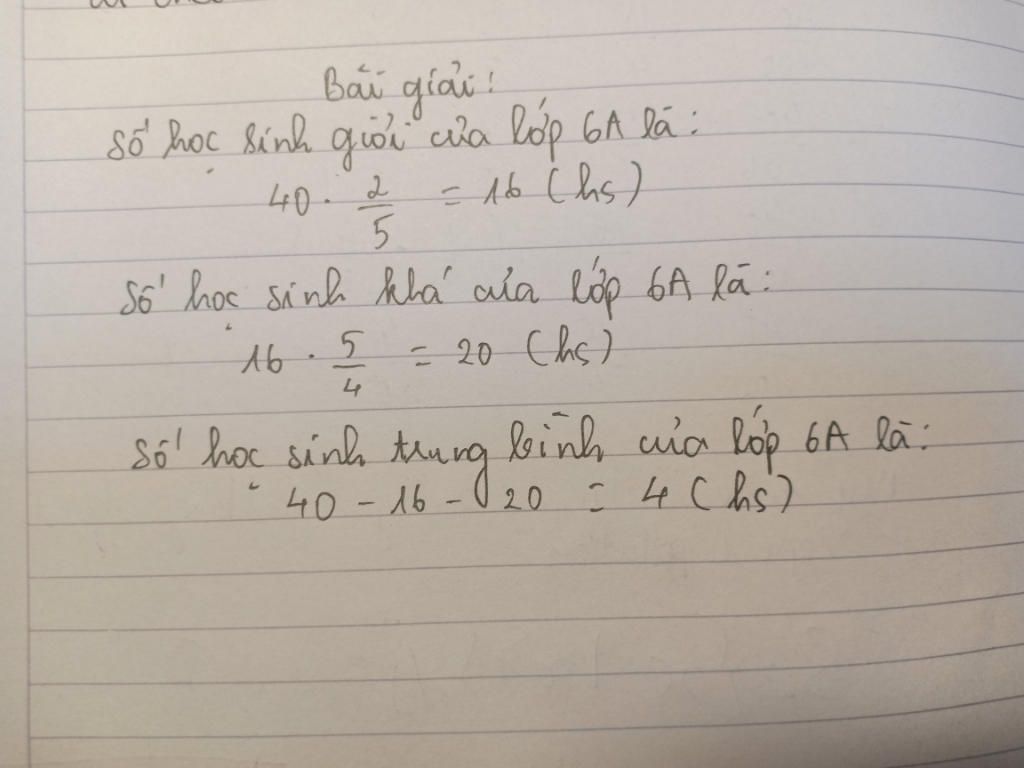 Bài giải:
Số học sinh giỏi của lớp 6A là:
40 . 2/5 = 16 (hs)
Số học sinh khá của lớp 6A là:
16 . 5/4 = 20 (hs)
Số học sinh trung bình của lớp 6A là:
40 - 16 - 20 = 4 (hs)